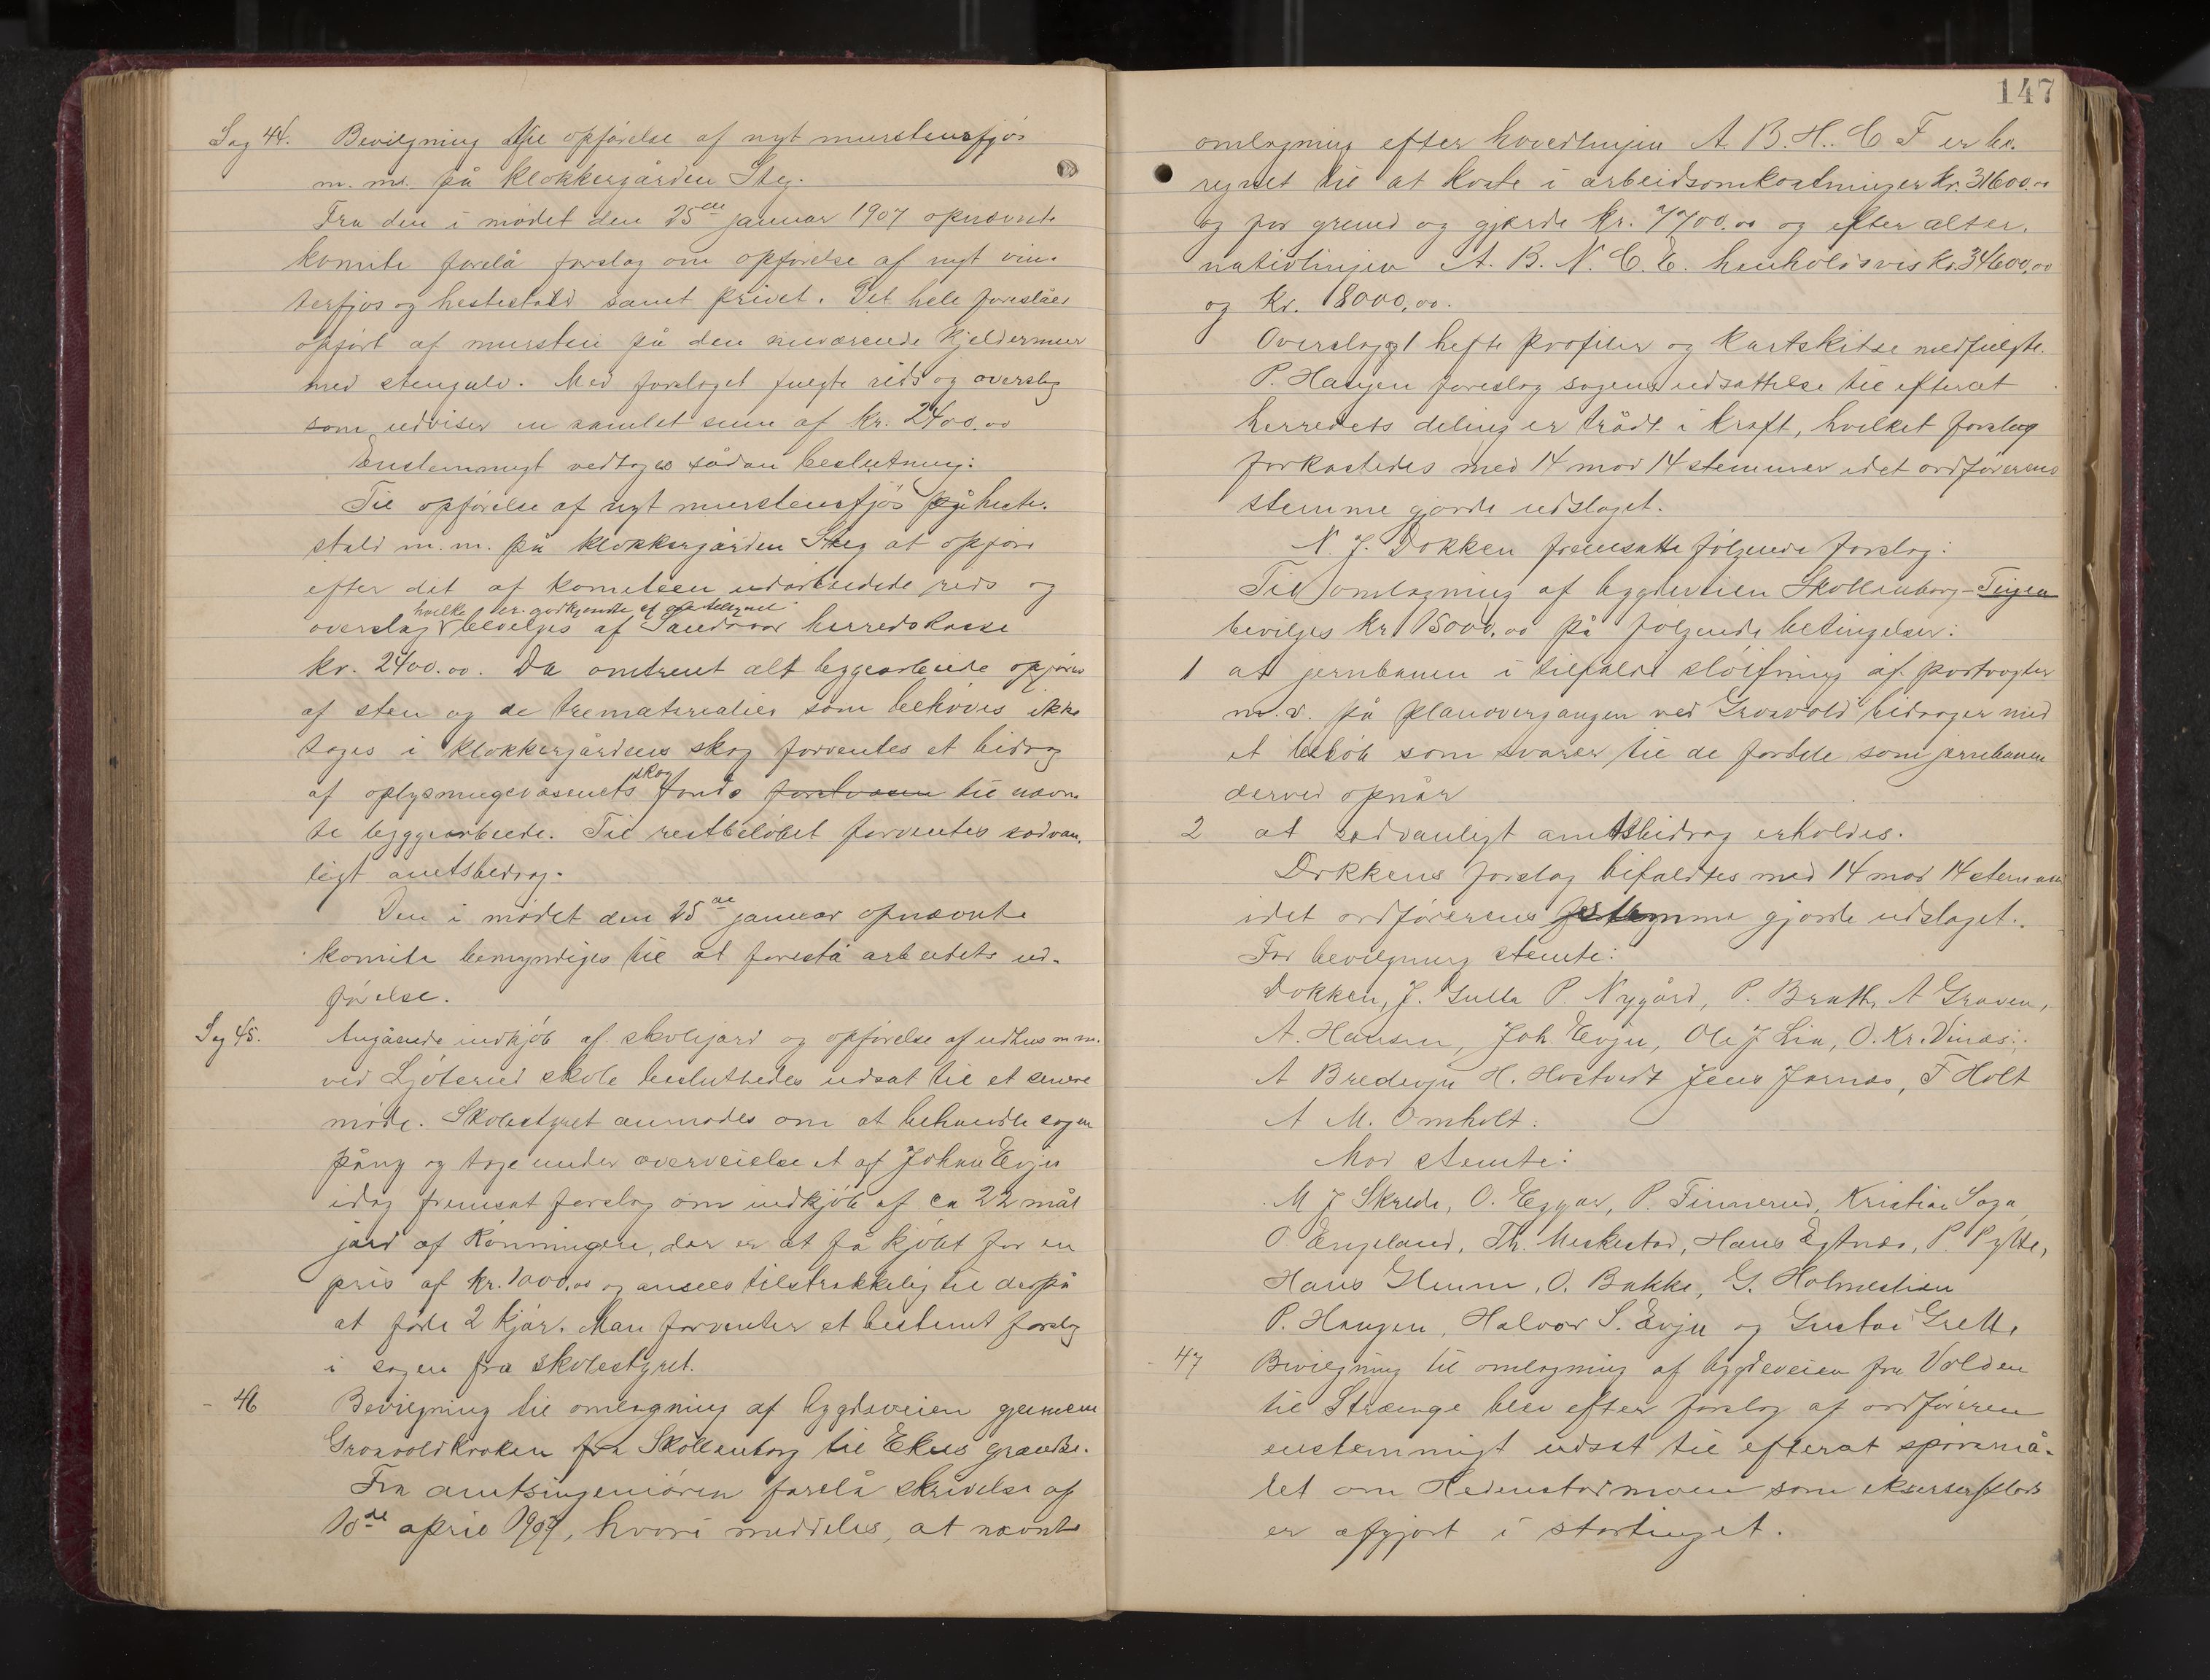 Sag 44. Bevilgning til opførelse af nyt murstensfjøs
m. m. på klokkergården Steg.
Fra den i mødet den 25de januar 1907 opnævnte
komite forelå forslag om opførelse af nyt vin-
terfjøs og hestestald samt privet. Det hele foreslåes
opført af mursten på den nuværende kjeldermur
med stengulv. Med forslaget fulgte rids og overslag
som udviser en samlet sum af kr. 2400.00
Enstemmigt vedtoges sådan beslutning:
Til opførelse af nyt murstensfjøs og heste-
stald m. m. på klokkergården Steg at opføre
efter det af komiteen udarbeidede rids og
hvilke er godkjendte af
overslag bevilges af Sandsvær herredskasse
kr. 2400.00. Da omtrent alt byggearbeide opføres
af sten og de trematerialier som behøves ikke
tages i klokkergårdens skog forventes et bidrag
skog
af oplysningsvæsenets fonds til nævn
te byggearbeide. Til restbeløbet forventes sædvan-
ligt amtsbidrag.
Den i mødet den 25de januar opnævnte
komite bemyndiges til at forestå arbeidets ud-
førelse.
Sag 45. Angående indkjøb af skolejord og opførelse af udhus m m.
ved Ljøterud skole besluttedes udsat til et senere
møde. Skolestyret anmodes om at behandle sagen
påny og tage under overveielse et af Johan Evju
idag fremsat forslag om indkjøb af ca 22 mål
jord af Rønningen, der er at få kjøbt for en
pris af kr. 1000.00 og ansees tilstrækkelig til derpå
at føde 2 kjør. Man forventer et bestemt forslag
i sagen fra skolestyret.
- 46 Bevilgning til omlægning af bygdeveien gjennem
Grosvoldkroken fra Skollenborg til Ekers grændse.
Fra amtsingeniøren forelå skrivelse af
10de april 1907, hvori meddeles, at nævnte
147
omlægning efter hovedlinjen A. B. H. C F er be-
regnet til at koste i arbeidsomkostninger kr. 31600.00
og for grund og gjærde kr. 7700.00 og efter alter-
nativlinjen A. B. N. C. E. henholdsvis kr. 34600,00
og kr. 18000,00.
Overslag 1 hefte profiler og kartskitse medfulgte.
P. Haugen foreslog sagens udsættelse til efterat
herredets deling er trådt i kraft, hvilket forslag
forkastedes med 14 mod 14 stemmer idet ordførerens
stemme gjorde udslaget.
N. J. Dokken fremsatte følgende forslag:
Til omlægning af bygdeveien Skollenborg - Teigen
bevilges kr 15000.00 på følgende betingelser:
1 at jernbanen i tilfælde sløifning af portvogter
m. v. på planovergangen ved Grosvold bidrager med
et beløb som svarer til de fordele som jernbanen
derved opnår
2 at sædvanligt amtsbidrag erholdes.
Dokkens forslag bifaldtes med 14 mod 14 stemmer
idet ordførerens stemme gjorde udslaget.
For bevilgning stemte:
Dokken, J. Gulla P. Nygård, P. Brath, A Graven,
A. Hansen, Joh. Evju, Ole J Lia, O. Kr. Vinæs;
A Bredevju H. Hostvedt Jens Jørnæs, F Holt
A M. Omholt:
Mod stemte:
M J Skrede, O. Eggar, P. Tinnerud, Kristian Saga,
O Engeland, Th. Meskestad, Hans Egtnæs, P. Pytte,
Hans Glenne, O. Bakke, G. Holmestien
P. Haugen, Halvor S. Evju og Gustav Grette
- 47 Bevilgning til omlægning af bygdeveien fra Volden
til Strænge blev efter forslag af ordføreren
enstemmigt udsat til efterat spørsmå-
let om Hedenstadmoen som ekserserplads
er afgjort i stortinget.